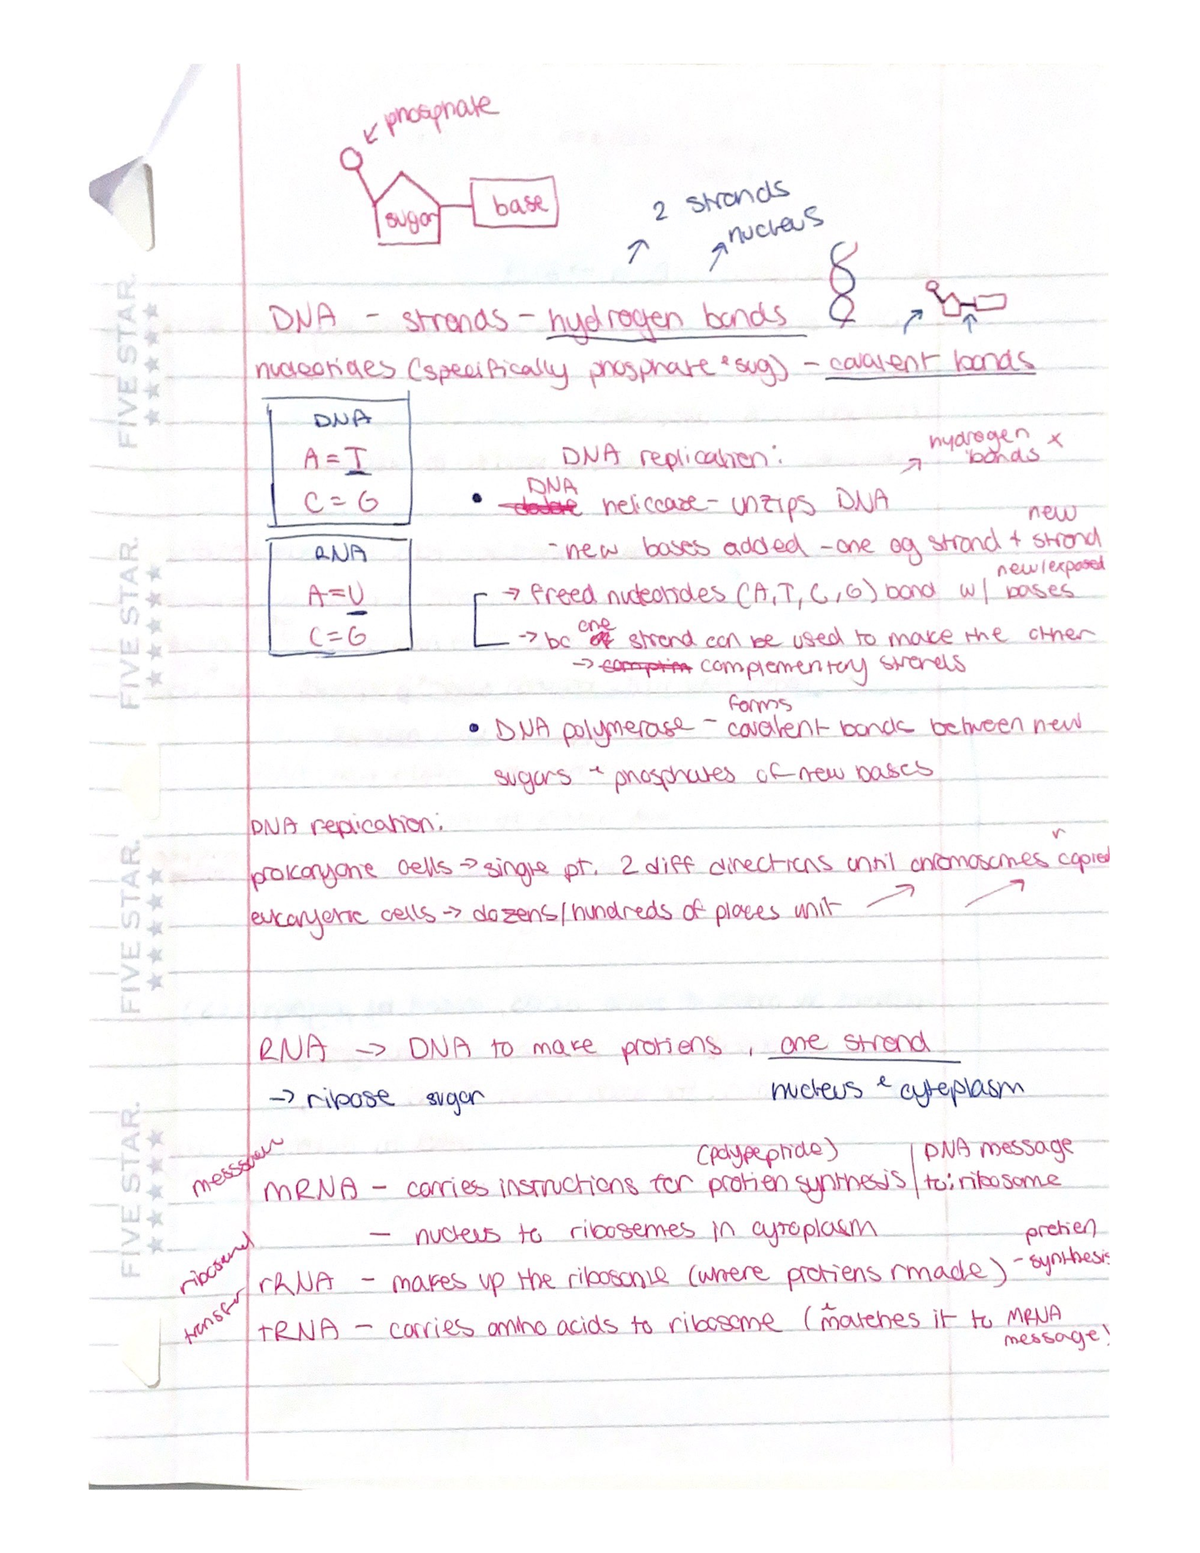 phosphate
sugar
base
2 strands
nucleus
DNA - strands - hydrogen bonds
nucleotides (specifically phosphate & sug) - covalent bonds
DNA
A = T
C = G
RNA
A = U
C = G
DNA replication:
hydrogen bonds x
DNA
• heliccase - unzips DNA
- new bases added - one og strand + new strand
→ freed nucleotides (A, T, C, G) bond w/ new/exposed bases
→ bc one strand can be used to make the other
→ complementary strands
• DNA polymerase - forms covalent bonds between new
sugars + phosphates of new bases
DNA replication:
prokaryotic cells → single pt. 2 diff directions until chromosomes r copied
eukaryotic cells → dozens/hundreds of places unit
RNA → DNA to make protiens, one strand
→ ribose sugar nucleus & cytoplasm
mRNA - carries instructions for protien synthesis (polypeptide) | DNA message to: ribosome
- nucleus to ribosomes in cytoplasm
ribosomal rRNA - makes up the ribosome (where protiens r made) - protien synthesis
transfer tRNA - carries amino acids to ribosome ( + matches it to mRNA message!
FIVE STAR.
FIVE STAR.
FIVE STAR.
FIVE STAR.